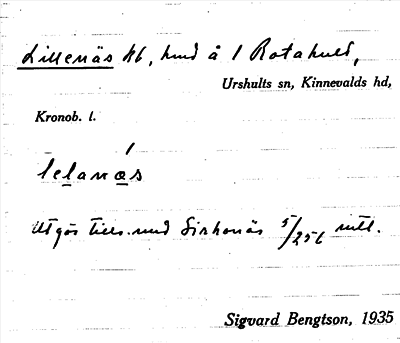 Lillenäs hb, hmd å 1 Rotahult,
Urshults sn, Kinnevalds hd,
Kronob. l.
lelanæs
Utgör tills. med Sirkonäs 5/256 mtl.
Sigvard Bengtson, 1935